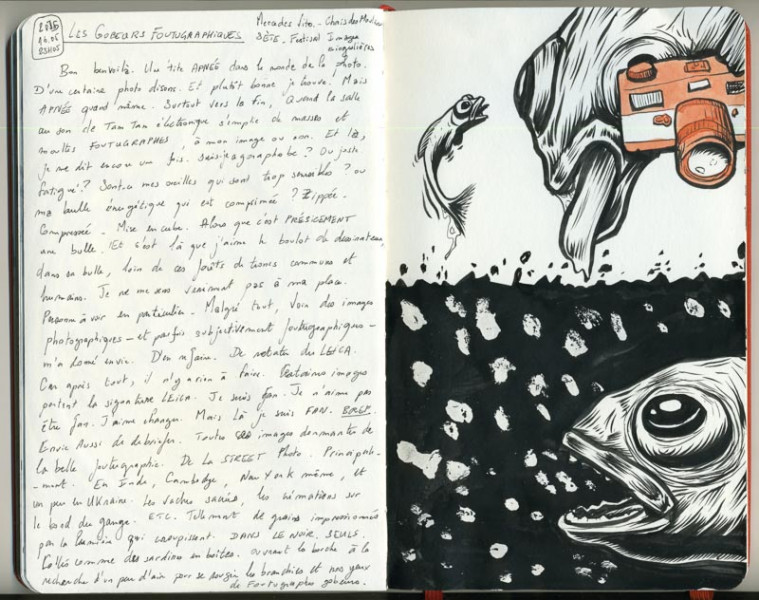 2016
16.05
23H05
LES GOBEURS FOUTUGRAPHIQUES
Mercedes Vito. - Chais des Moulins
SÈTE. Festival Images
singulières
Bon ben voilà. Une 'tite APNÉE dans le monde de la photo.
D'une certaine photo disons. Et plutôt bonne je trouve. Mais
APNÉE quand même. Surtout vers la fin, quand la salle
au son de Tam Tam électronique s'emplie de masses et
moultes FOUTUGRAPHES, à mon image ou non. Et là,
je me dit encore une fois. Suis-je agoraphobe? Ou juste
fatigué? Sont-ce mes oreilles qui sont trop sensibles? ou
ma bulle énergétique qui est comprimée? Zippée.
Compressée. Mise en cube. Alors que c'est PRÉCISEMENT
une bulle. Et c'est là que j'aime le boulot de dessinateur,
dans sa bulle, loin de ces joûts de troncs communs et
humains. Je ne me sens vraiment pas à ma place.
Personne à voir en particulier. Malgré tout, voir des images
photographiques - et parfois subjectivement foutugraphiques -
m'a donné envie. D'en refaire. De retater du LEICA.
Car après tout, il n'y a rien à faire. Certaines images
portent la signature LEICA. Je suis fan. Je n'aime pas
être fan. J'aime changer. Mais là je suis FAN. BREF.
Envie Aussi de
Toutes images donnantes de
la belle foutugraphie. De LA STREET Photo. Principale-
-ment. En Inde, Cambodge, New York même, et
un peu en Ukraine. Les vaches sacrées, les crémations sur
le bord du gange. ETC. Tellement de grains impressionnés
par la lumière qui croupissent. DANS LE NOIR. SEULS.
Collés comme des sardines en boîtes. ouvrant la bouche à la
recherche d'un peu d'air pour se les branchies et nos yeux
de Foutugraphes gobeurs.